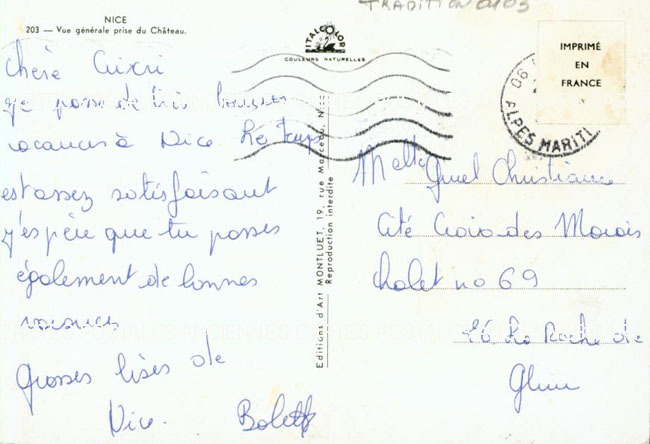 TRADITION 0403
NICE
203 — Vue générale prise du Château.
ITALCOLOR
COULEURS NATURELLES
IMPRIMÉ
EN
FRANCE
06
ALPES MARITI
Chère
je passe de très bonnes
vacances à Nice. Le temps
est assez satisfaisant
j'espère que tu passes
également de bonnes
vacances
Grosses bises de
Nice.
Editions d'Art MONTLUET, 19, rue Marceau, N
Reproduction interdite
Melle Christiane
Cité Croix des Marais
chalet no 69
La Roche de
Glun
CARTES POSTALES ANCIENNES CARTES POSTALES